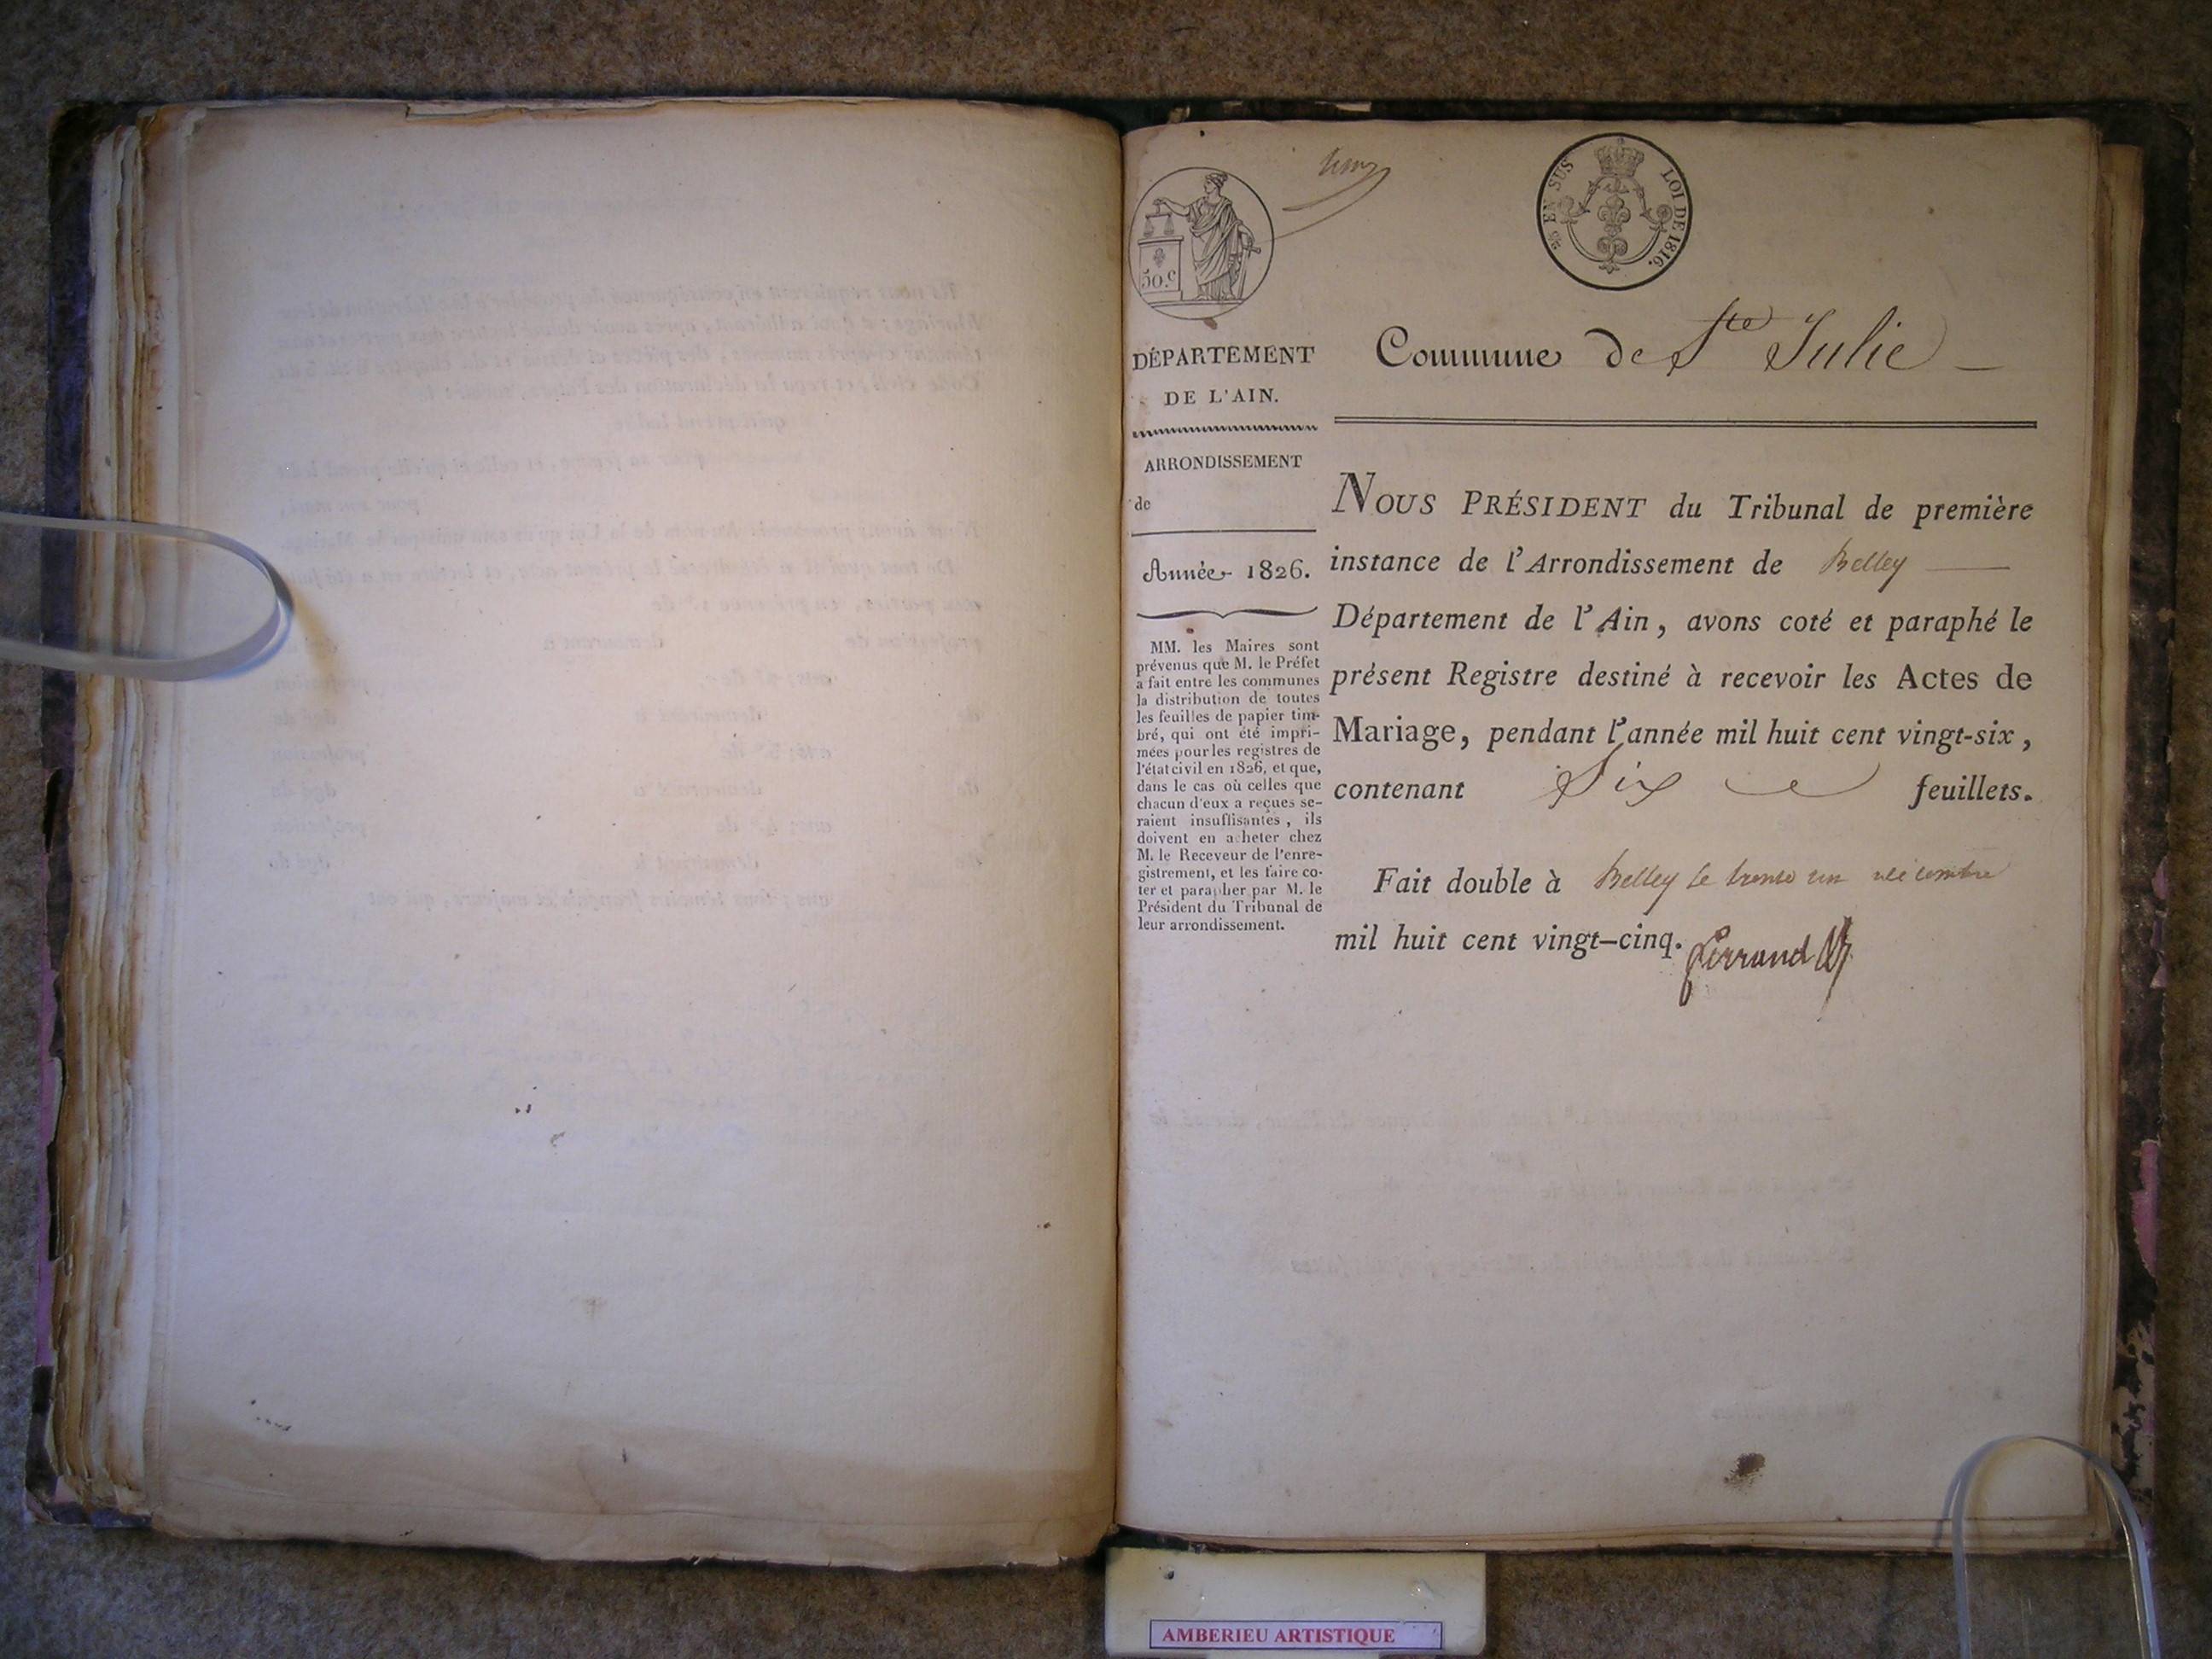 EN SUS LOI DE 1816.
50.c
DÉPARTEMENT
DE L'AIN.
ARRONDISSEMENT
de
Année 1826.
MM. les Maires sont
prévenus que M. le Préfet
a fait entre les communes
la distribution de toutes
les feuilles de papier tim-
bré, qui ont été impri-
mées pour les registres de
l'état civil en 1826, et que,
dans le cas où celles que
chacun d'eux a reçues se-
raient insuffisantes, ils
doivent en acheter chez
M. le Receveur de l'enre-
gistrement, et les faire co-
ter et parapher par M. le
Président du Tribunal de
leur arrondissement.
Commune de Ste Julie
NOUS PRÉSIDENT du Tribunal de première
instance de l'Arrondissement de Belley
Département de l'Ain, avons coté et paraphé le
présent Registre destiné à recevoir les Actes de
Mariage, pendant l'année mil huit cent vingt-six,
contenant Six feuillets.
Fait double à Belley le trente un décembre
mil huit cent vingt-cinq.
AMBERIEU ARTISTIQUE